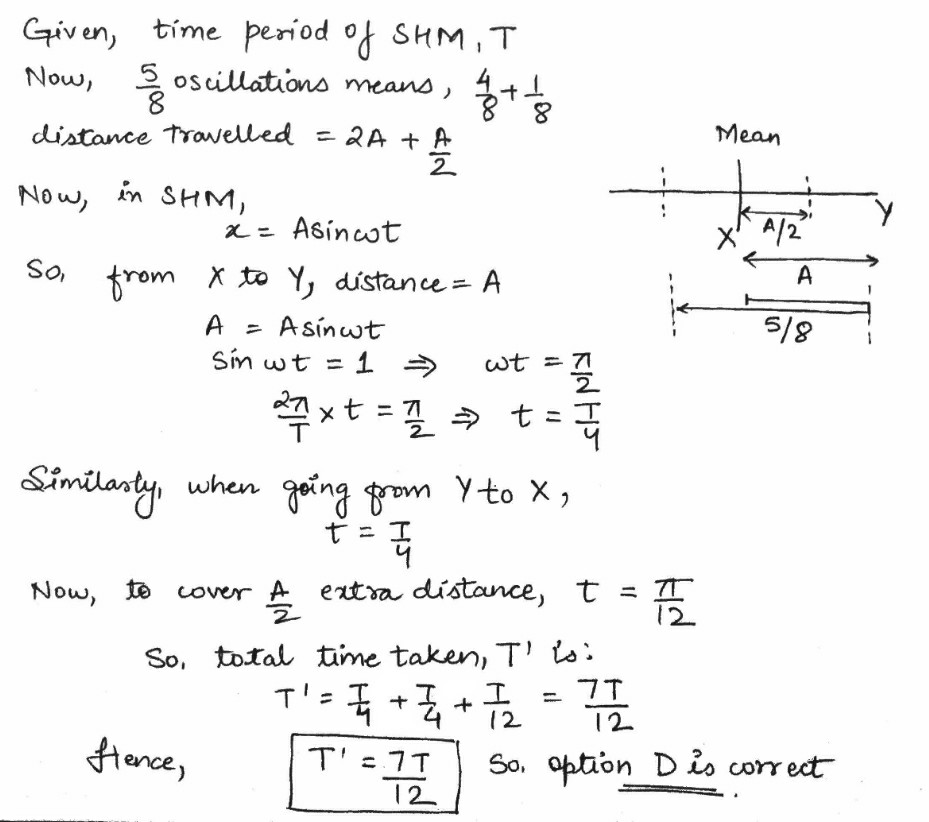 Given, time period of SHM, T
Now, 5/8 oscillations means, 4/8 + 1/8
distance travelled = 2A + A/2
Mean
Now, in SHM,
x = Asinωt
X A/2 Y
So, from X to Y, distance = A
A
A = Asinωt
5/8
Sin ωt = 1 ⇒ ωt = π/2
2π/T × t = π/2 ⇒ t = T/4
Similarly, when going from Y to X,
t = T/4
Now, to cover A/2 extra distance, t = π/12
So, total time taken, T' is:
T' = T/4 + T/4 + T/12 = 7T/12
Hence, T' = 7T/12 So, option D is correct.